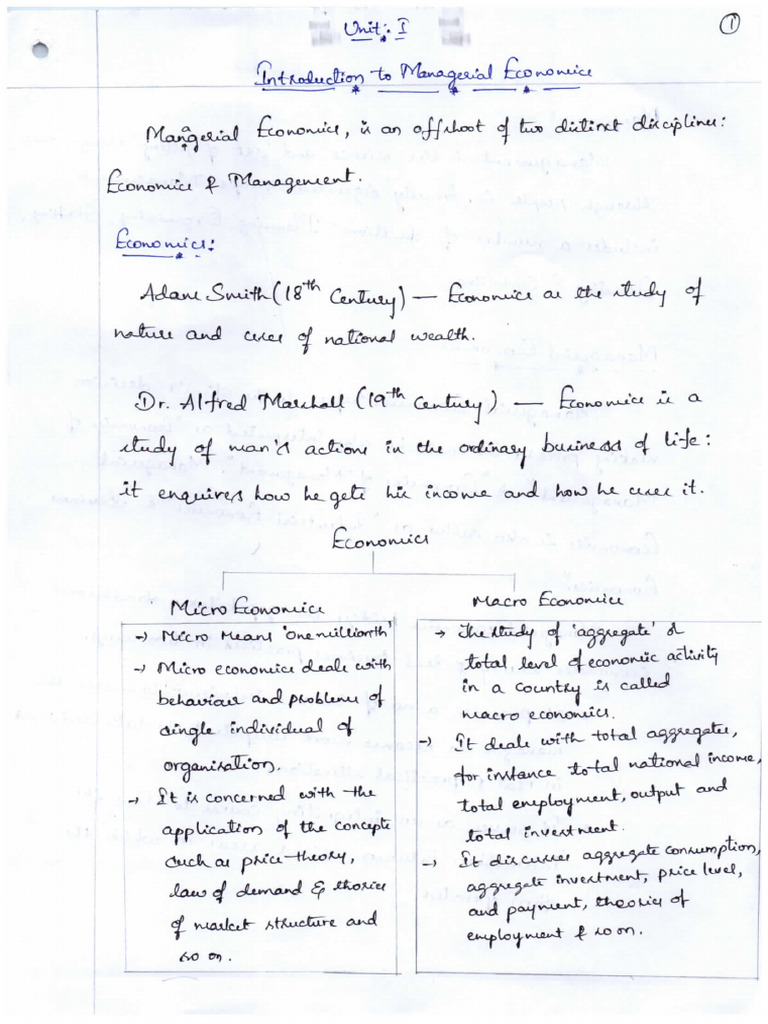 Unit: I
1
Introduction to Managerial Economics
Managerial Economics, is an offshoot of two distinct disciplines:
Economics & Management.
Economics:
Adam Smith (18th Century) — Economics as the study of
nature and uses of national wealth.
Dr. Alfred Marshall (19th Century) — Economics is a
study of man's actions in the ordinary business of life:
it enquires how he gets his income and how he uses it.
Economics
Micro Economics
→ Micro Means 'one millionth'
→ Micro economics deals with
behaviour and problems of
single individual of
organisation.
→ It is concerned with the
application of the concepts
such as price-theory,
law of demand & thories
of market structure and
so on.
Macro Economics
→ The study of 'aggregate' or
total level of economic activity
in a country is called
macro economics.
→ It deals with total aggregates,
for instance total national income,
total employment, output and
total investment.
→ It discusses aggregate consumption,
aggregate investment, price level,
and payment, theories of
employment & so on.